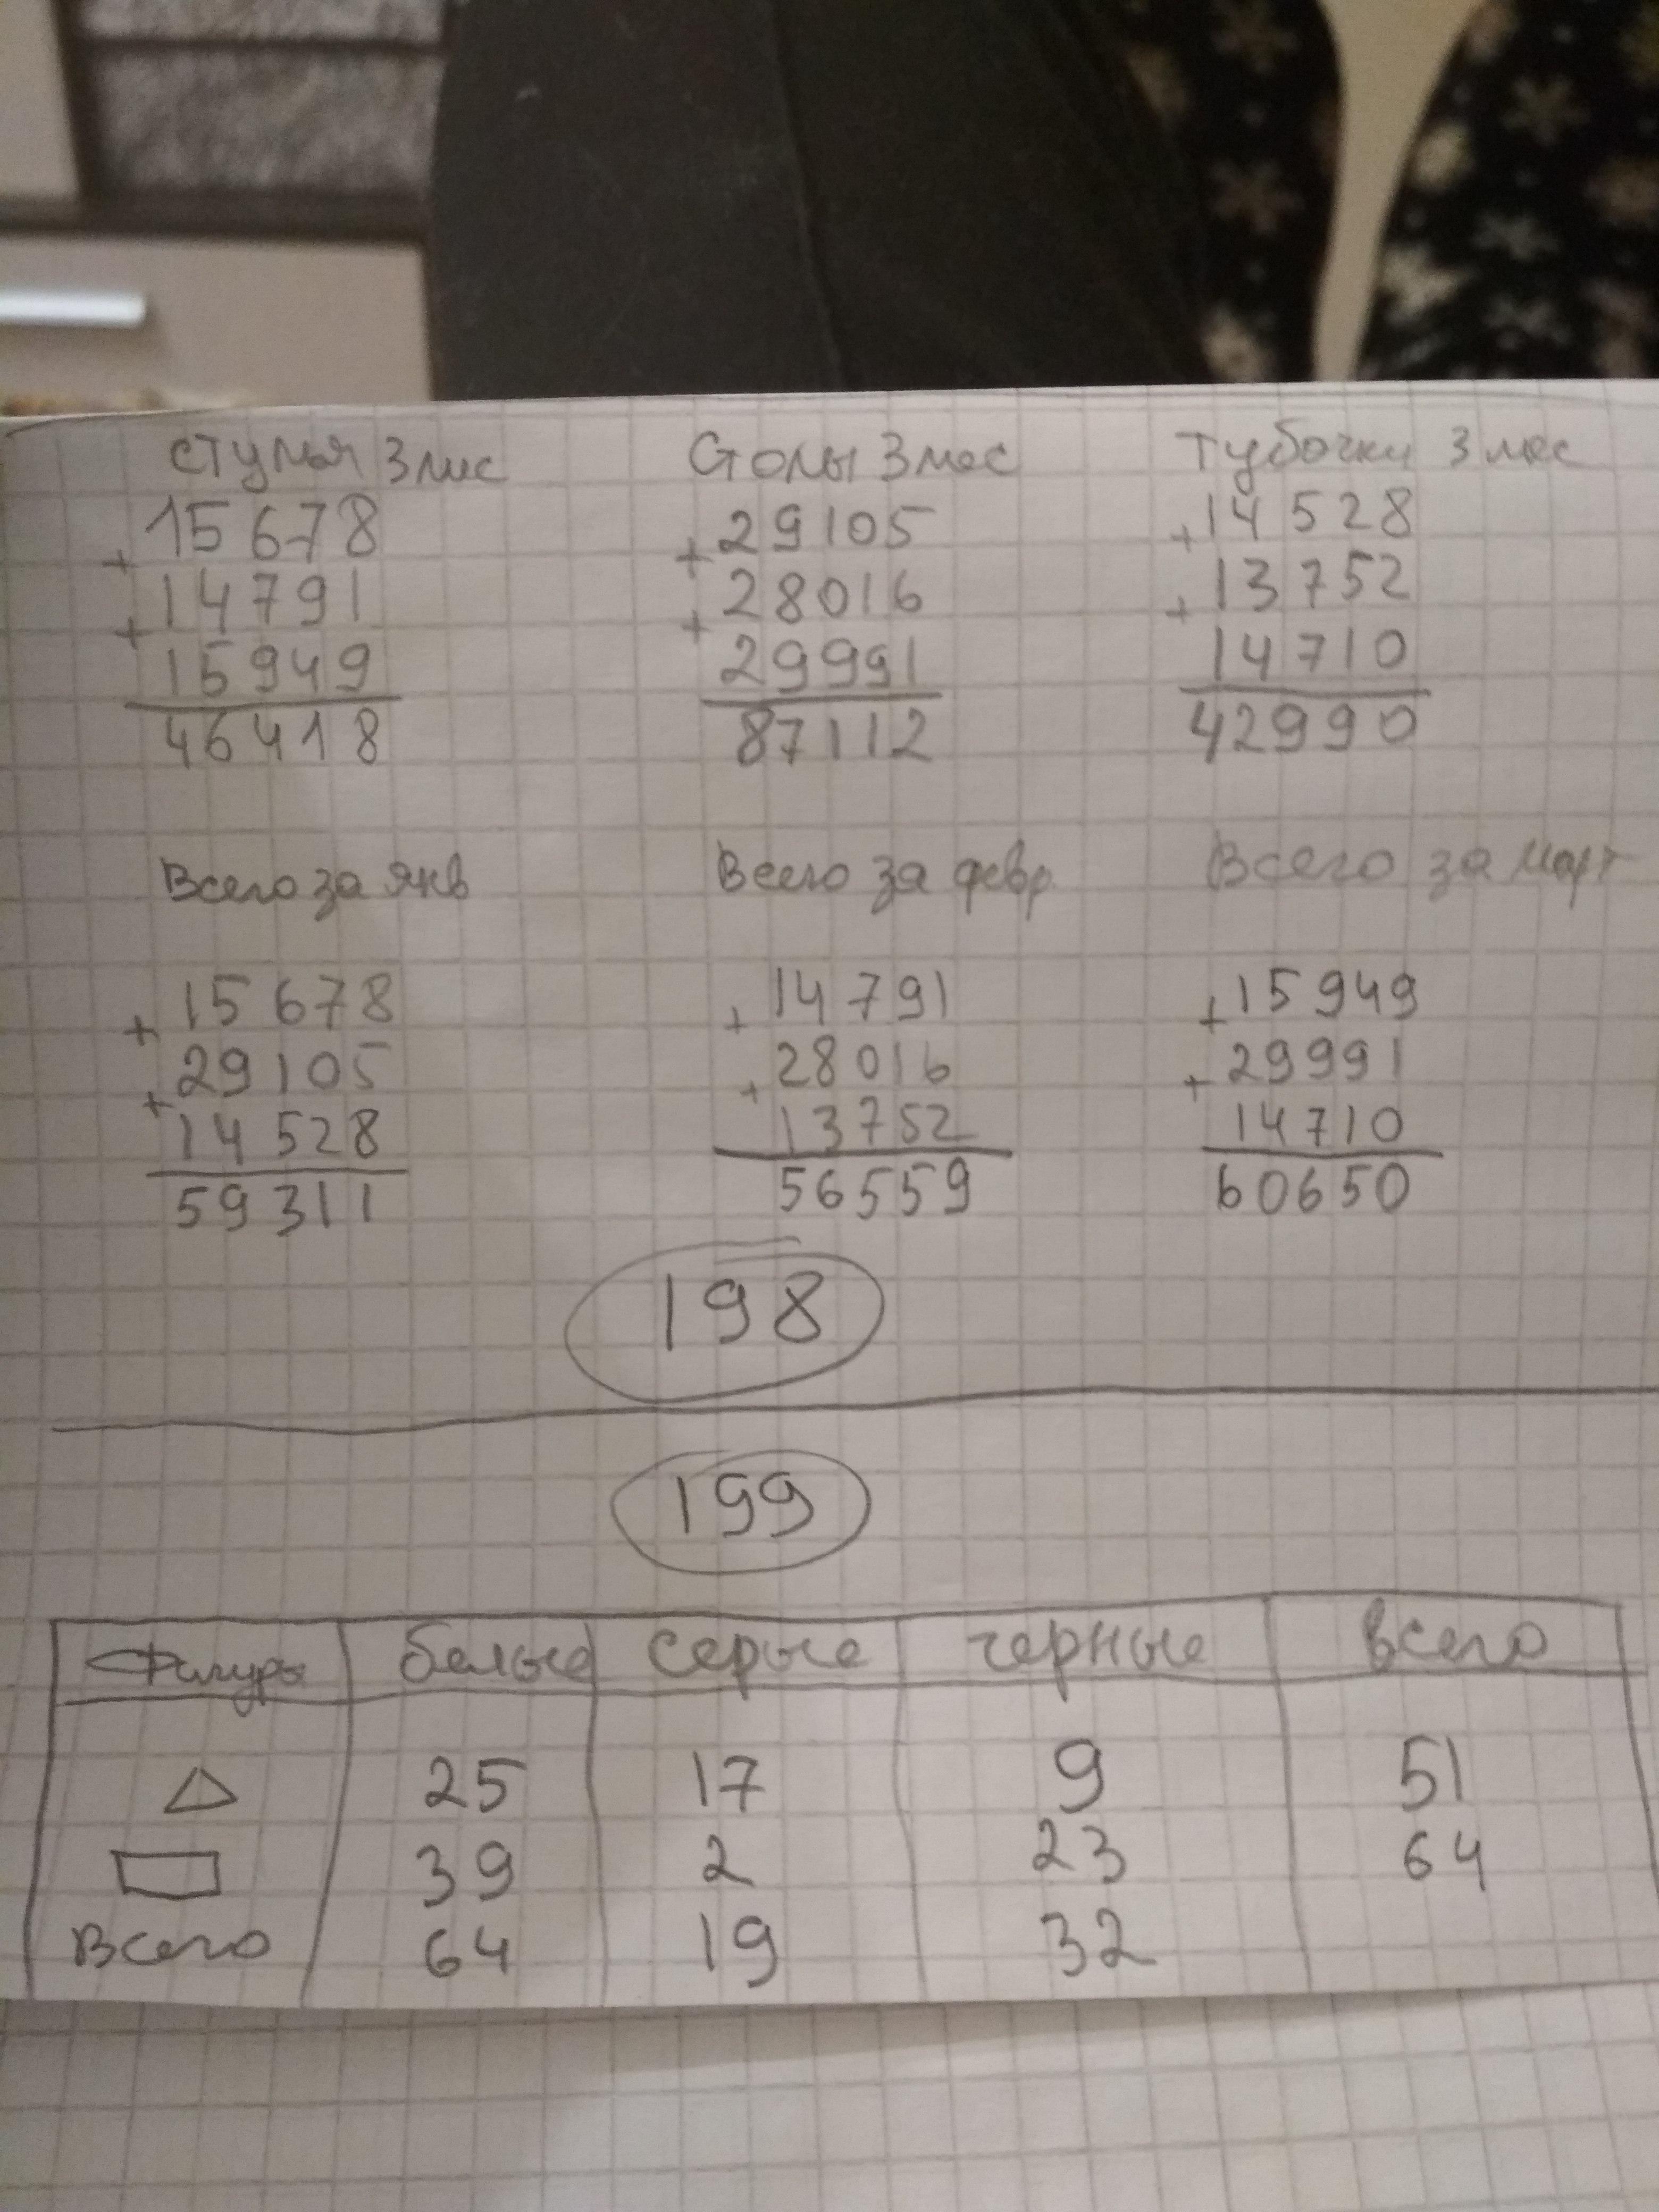 стулья 3 мес
15678
+
14791
+
15949
46418
Столы 3 мес
29105
+
28016
+
29991
87112
Тубочки 3 мес
14528
+
13752
+
14710
42990
Всего за янв
15678
+
29105
+
14528
59311
Всего за февр
14791
+
28016
+
13752
56559
Всего за март
15949
+
29991
+
14710
60650
198
199
Фигуры белые серые черные всего
25 17 9 51
39 2 23 64
Всего 64 19 32